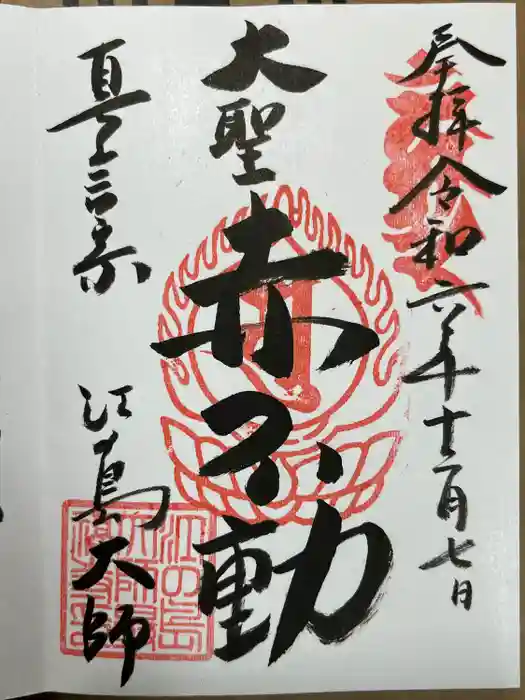 奉拝 令和六年十二月七日
大聖
赤不動
真言宗
江島大師